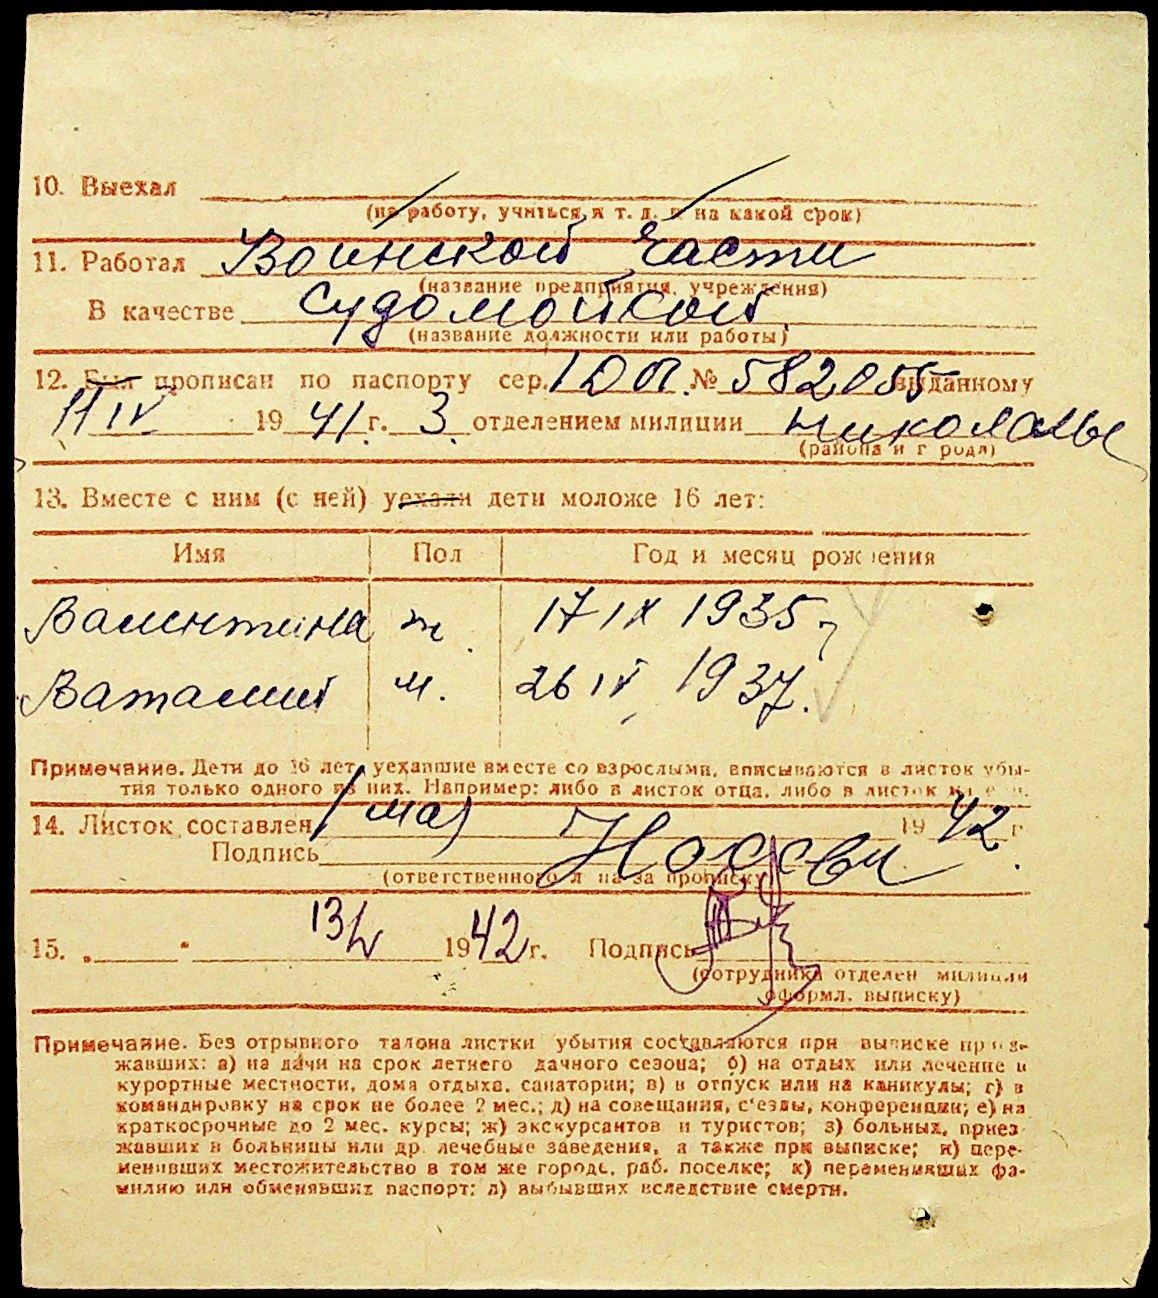 10. Выехал
(на работу, учиться и т. д. и на какой срок)
11. Работал Воинской части
(название предприятия, учреждения)
В качестве судомойкой
(название должности или работы)
12. Был прописан по паспорту сер. № 582055 выданному
11 IV 1941 г. 3 отделением милиции
(района и города)
13. Вместе с ним (с ней) уехали дети моложе 16 лет:
Имя Пол Год и месяц рождения
Валентина ж 17 IX 1935
Виталий м. 26 IV 1937.
Примечание. Дети до 16 лет, уехавшие вместе со взрослыми, вписываются в листок убы-
тия только одного из них. Например: либо в листок отца, либо в листок
14. Листок составлен 1 мая 1942 г.
Подпись
(ответственного л на за прописку)
15. „ " 1942 г. Подпись
(сотрудника отделен милиции
оформл. выписку)
Примечание. Без отрывного талона листки убытия составляются при выписке приез-
жавших: а) на дачи на срок летнего дачного сезона; б) на отдых или лечение в
курортные местности, дома отдыха, санатории; в) в отпуск или на каникулы; г) в
командировку на срок не более 2 мес.; д) на совещания, с'езды, конференции; е) на
краткосрочные до 2 мес. курсы; ж) экскурсантов и туристов; з) больных, приез
жавших в больницы или др. лечебные заведения, а также при выписке; и) пере-
менивших местожительство в том же городе, раб. поселке; к) переменивших фа-
милию или обменявших паспорт; л) выбывших вследствие смерти.